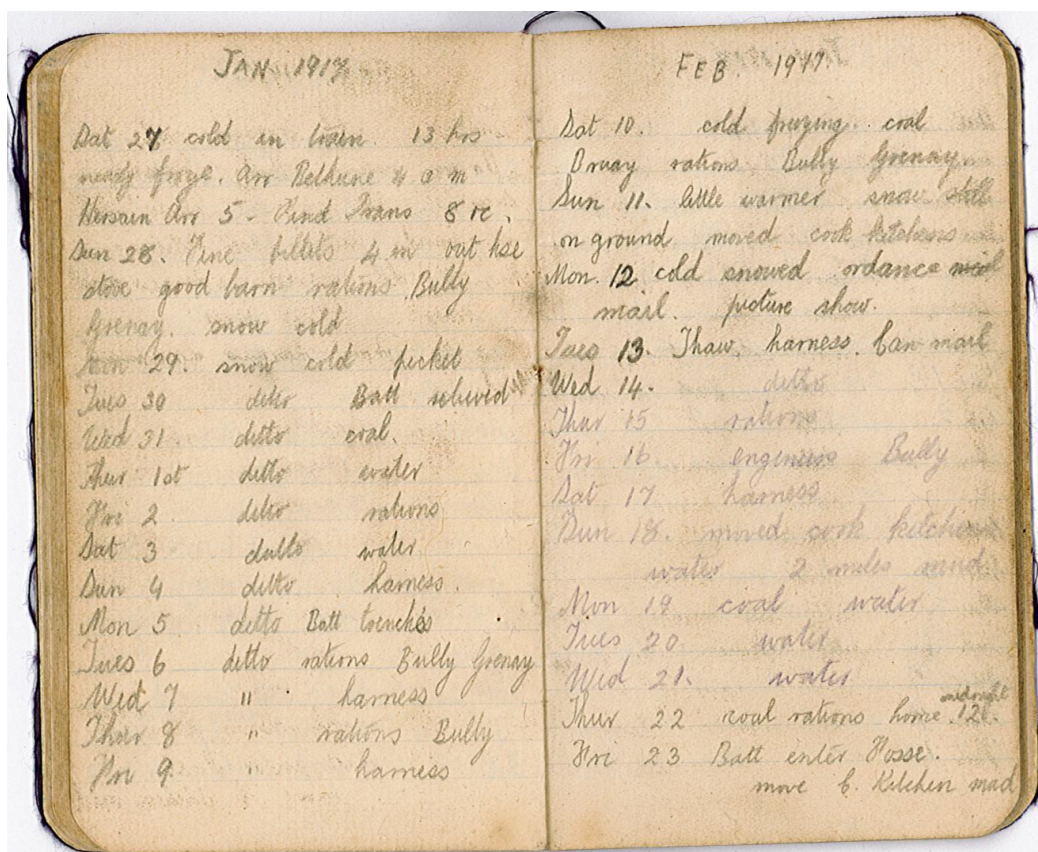 JAN 1917
Sat 27 cold in train. 13 hrs
nearly froze. Arr Bethune 4 a m
Hersain Arr 5 - Find Trans 8 oc.
Sun 28. Fine billets 4 in out hse
stove good barn rations Bully
Grenay. snow cold
29. snow cold picket
Tues 30 ditto Batt relieved
Wed 31. ditto coal.
Thur 1st ditto water
Fri 2 ditto rations
Sat 3 ditto water
Sun 4 ditto harness.
Mon 5 ditto Batt trenches
Tues 6 ditto rations Bully Grenay
Wed 7 " harness
Thur 8 " rations Bully
Fri 9 " harness
FEB. 1917.
Sat 10. cold freezing. coal
Bruay rations Bully Grenay
Sun 11. little warmer snow still
on ground moved cook kitchens
Mon. 12 cold snowed ordance
mail. picture show.
Tues 13. Thaw. harness. Can mail
Wed 14. ditto
Thur 15 rations
Fri 16. engineers Bully
Sat 17 harness
Sun 18. moved cook kitchens
water 2 miles mud
Mon 19 coal water
Tues 20 water
Wed 21. water
midnight
Thur 22 coal rations home 12.
Fri 23 Batt enter Fosse.
move C. Kitchen mud